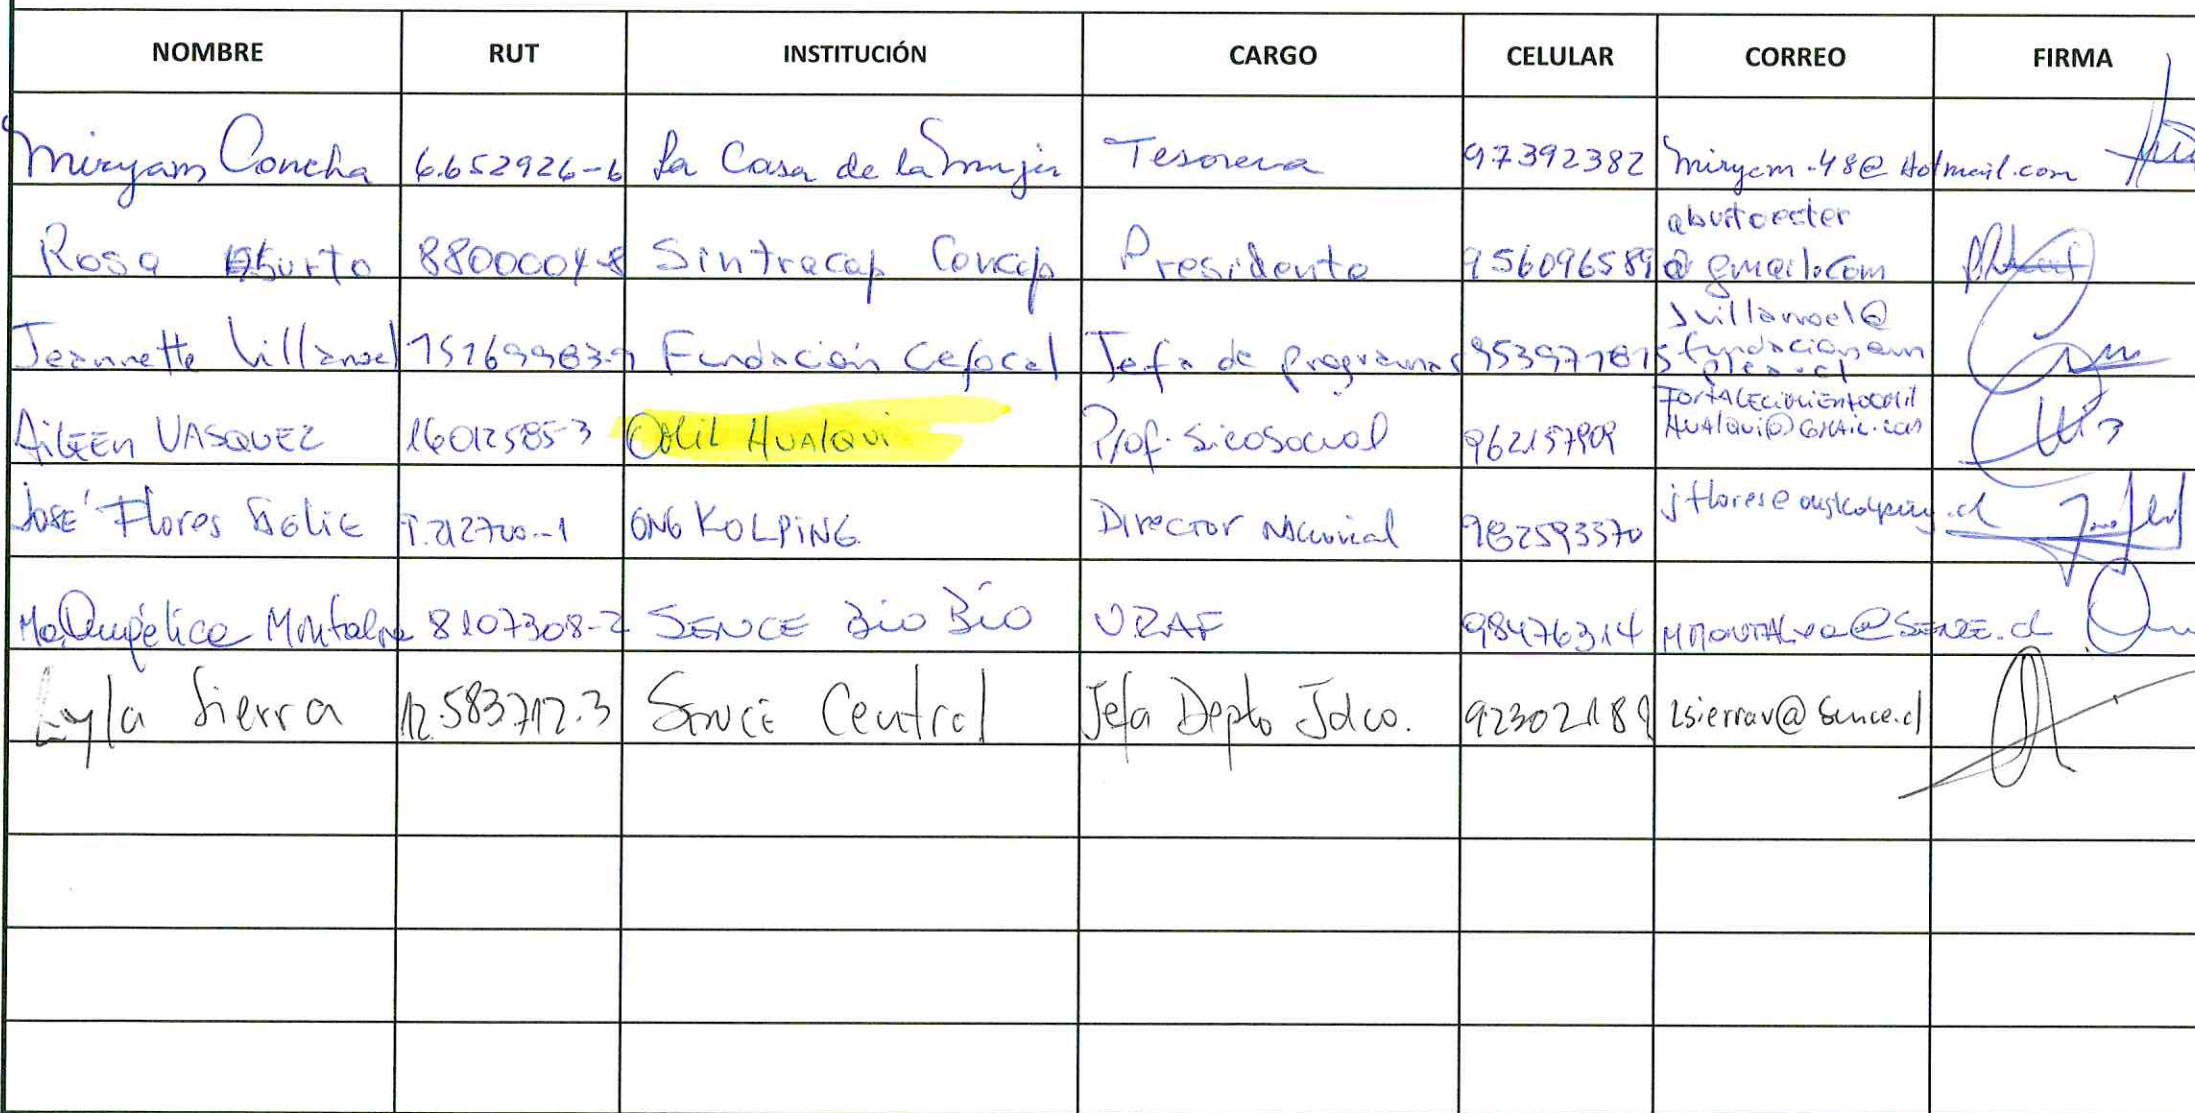 NOMBRE RUT INSTITUCIÓN CARGO CELULAR CORREO FIRMA
Miryam Concha 6.652926-6 La Casa de la Mujer Tesorera 97392382 miryam.48@Hotmail.com
Rosa Aburto 8800004-8 Sintracap Concep Presidenta 956096589 aburtoester
@gmail.com
Jeannette Villarroel Fundación Cefocal Jefa de programas jvillarroel@
Aileen VASQUEZ 16012585-3 OMIL HUALQUI Prof. Sicosocial 962157909 FORTALECIMIENTOOMIL
HUALQUI@GMAIL.COM
José Flores ONG KOLPING Director Nacional 982593370 jflores@ongkolping.cl
Ma Angélica Montalva 8107308-2 SENCE Bío Bío 98476314 MMONTALVA@SENCE.cl
Lyla Sierra 12.583712.3 SENCE Central Jefa Depto Jdco. 92302189 lsierrav@sence.cl